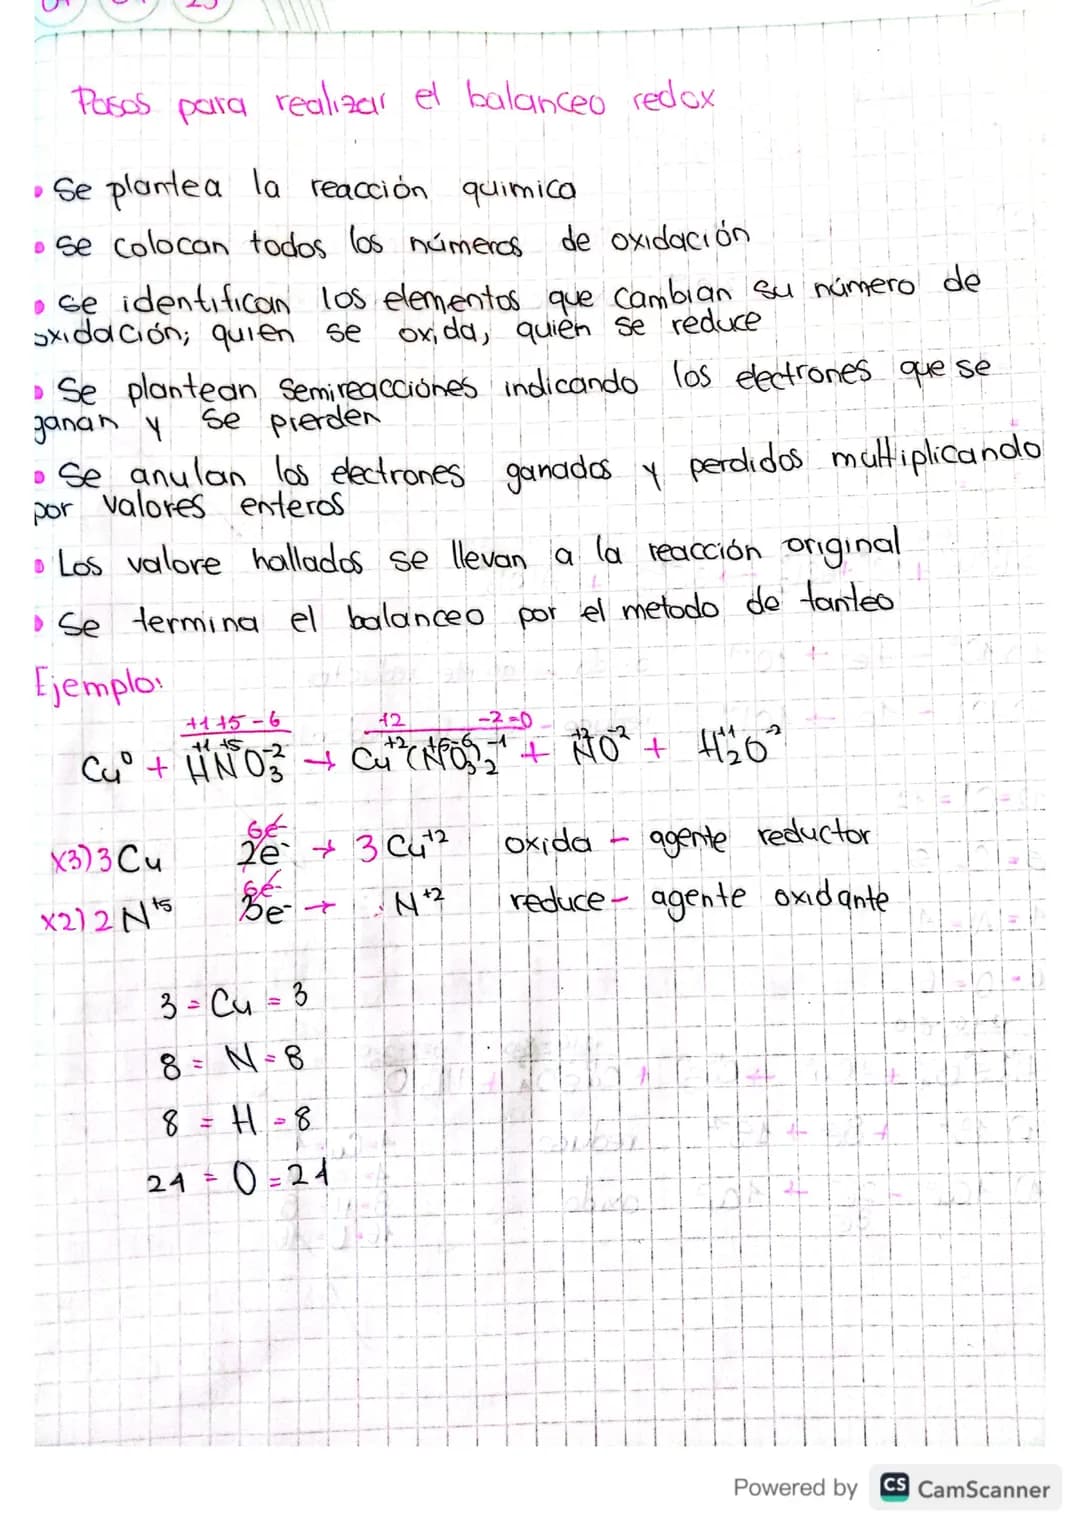 Pasos para realizar el balanceo redox
• Se plantea la reacción quimica
• Se colocan todos los números de oxidación
• Se identifican los elementos que cambian su número de
oxidación; quien se oxida, quién se reduce
• Se plantean semireacciónes indicando los electrones que se
ganan y se pierden
• Se anulan los electrones ganados y perdidos multiplicando
por valores enteros
• Los valore hallados se llevan a la reacción original
• Se termina el balanceo por el metodo de tanteo
Ejemplo:
+1 +5 -6 +2 -2=0
Cu⁰ + H⁺¹N⁺⁵O₃⁻² → Cu⁺²(N⁺⁵O₃⁻⁶)₂⁻¹ + N⁺²O⁻² + H₂⁺¹O⁻²
6e⁻
x3) 3Cu 2e⁻ → 3Cu⁺² oxida - agente reductor
6e⁻
x2) 2N⁺⁵ 3e⁻ → N⁺² reduce - agente oxidante
3 = Cu = 3
8 = N = 8
8 = H = 8
24 = O = 24
Powered by CS CamScanner